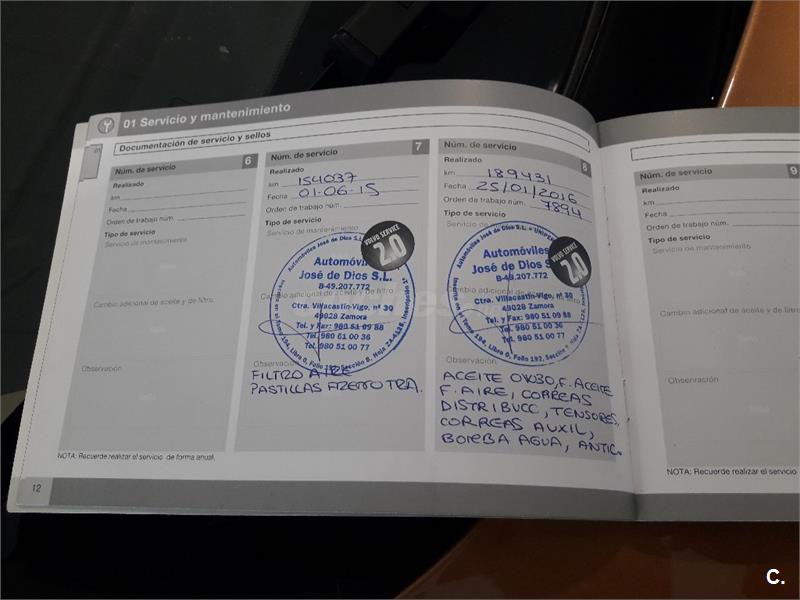 01 Servicio y mantenimiento
Documentación de servicio y sellos
01
Núm. de servicio 6
Realizado
km
Fecha
Orden de trabajo núm.
Tipo de servicio
Servicio de mantenimiento
Cambio adicional de aceite y de filtro
Observación
Núm. de servicio 7
Realizado
km 154037
Fecha 01-06-15
Orden de trabajo núm.
Tipo de servicio
Servicio de mantenimiento
VOLVO SERVICE
2.0
Automóviles José de Dios S.L.
Automóviles
José de Dios S.L.
B-49.207.772
Cambio adicional de aceite y de filtro
Ctra. Villacastín-Vigo, nº 30
49028 Zamora
Tel. y Fax: 980 51 09 88
Tel. 980 51 00 36
Tel. 980 51 00 77
Observación
FILTRO AIRE
PASTILLAS FRENO TRA.
Núm. de servicio 8
Realizado
km 189431
Fecha 25/01/2016
Orden de trabajo núm. 7894
Tipo de servicio
Servicio de
VOLVO SERVICE
2.0
Automóviles José de Dios S.L.
Automóviles
José de Dios S.L.
B-49.207.772
Cambio adicional de aceite y de
Ctra. Villacastín-Vigo, nº 30
49028 Zamora
Tel. y Fax: 980 51 09 88
Tel. 980 51 00 36
Tel. 980 51 00 77
Observación
ACEITE 0W30, F. ACEITE
F. AIRE, CORREAS
DISTRIBUCC, TENSORES,
CORREAS AUXIL,
BOMBA AGUA, ANTIC.
NOTA: Recuerde realizar el servicio de forma anual.
12
Núm. de servicio 9
Realizado
km
Fecha
Orden de trabajo núm.
Tipo de servicio
Servicio de mantenimiento
Cambio adicional de aceite y de filtro
Observación
NOTA: Recuerde realizar el servicio
C.